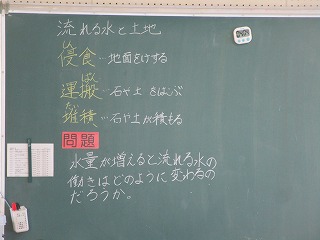 流れる水と土地
しん
侵食…地面をけずる
ぱん
運搬…石や土をはこぶ
たい
堆積…石や土が積もる
問題
水量が増えると流れる水の
働きはどのように変わるの
だろうか。